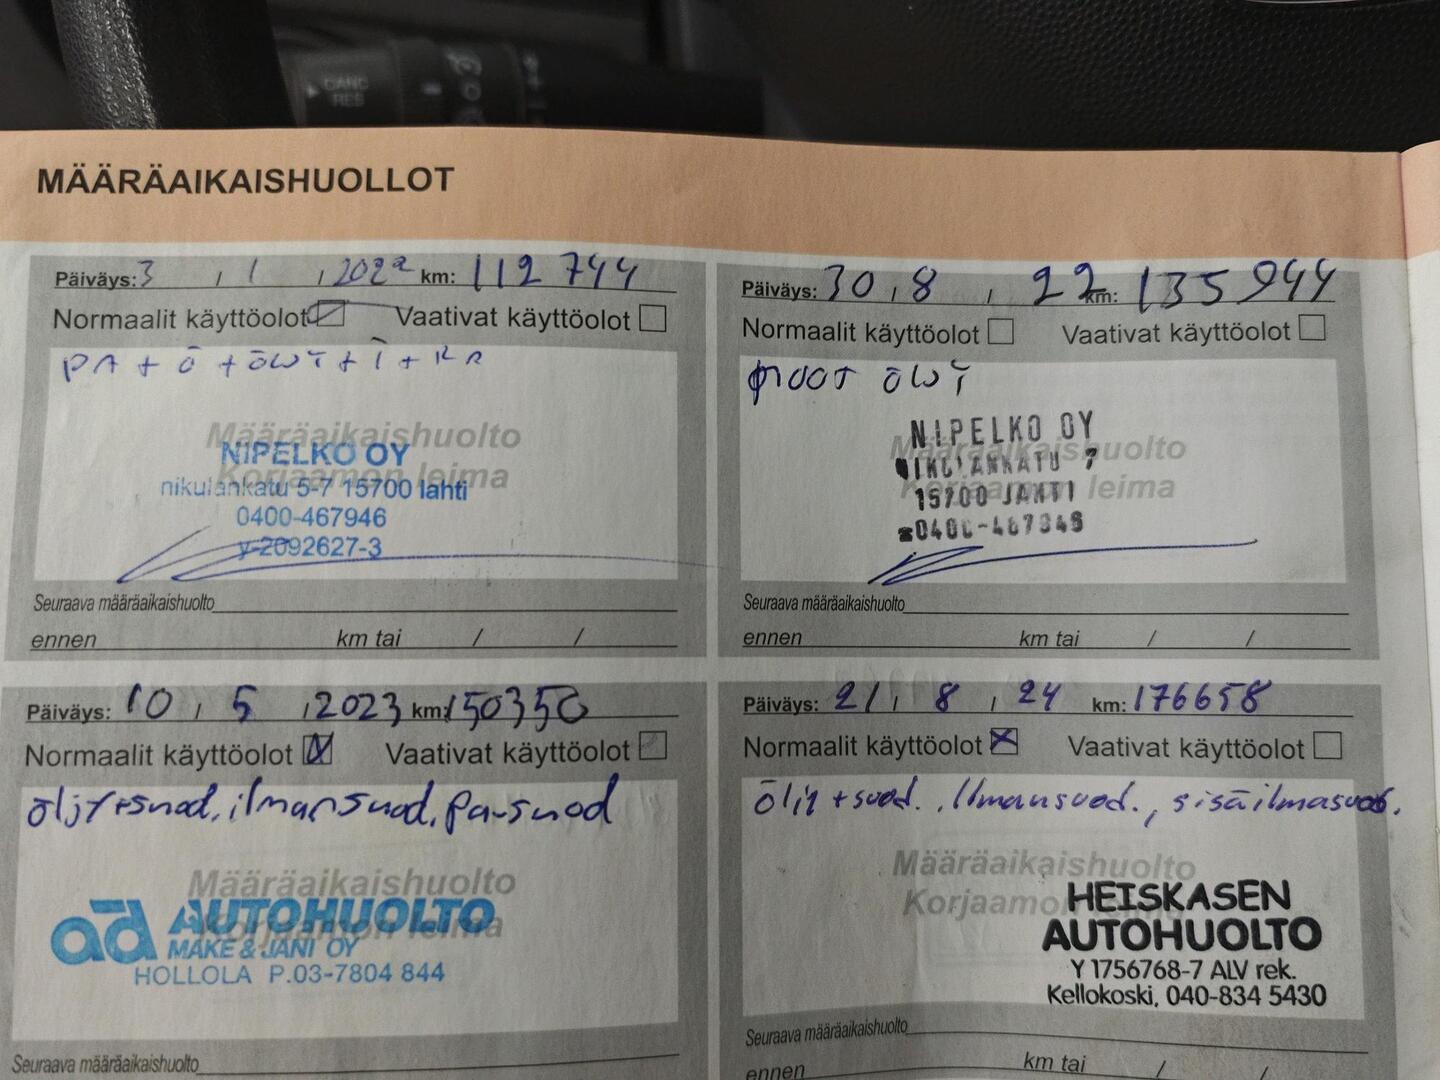 CANC
RES
MÄÄRÄAIKAISHUOLLOT
Päiväys: 3 / 1 / 2022 km: 112 744
Normaalit käyttöolot Vaativat käyttöolot
Määräaikaishuolto
Korjaamon leima
NIPELKO OY
nikulankatu 5-7 15700 lahti
0400-467946
y-2092627-3
Seuraava määräaikaishuolto
ennen km tai / /
Päiväys: 30 / 8 / 22 km: 135 944
Normaalit käyttöolot Vaativat käyttöolot
Määräaikaishuolto
Korjaamon leima
NIPELKO OY
15700
Seuraava määräaikaishuolto
ennen km tai / /
Päiväys: 10 / 5 / 2023 km: 150350
Normaalit käyttöolot Vaativat käyttöolot
öljyt+suod, ilmansuod, pa-suod
Määräaikaishuolto
Korjaamon leima
ad AUTOHUOLTO
MAKE & JANI OY
HOLLOLA P.03-7804 844
Seuraava määräaikaishuolto
Päiväys: 21 / 8 / 24 km: 176658
Normaalit käyttöolot Vaativat käyttöolot
Öljy + suod., Ilmansuod., sisäilmasuod.
Määräaikaishuolto
Korjaamon leima
HEISKASEN
AUTOHUOLTO
Y 1756768-7 ALV rek.
Kellokoski, 040-834 5430
Seuraava määräaikaishuolto
ennen km tai / /